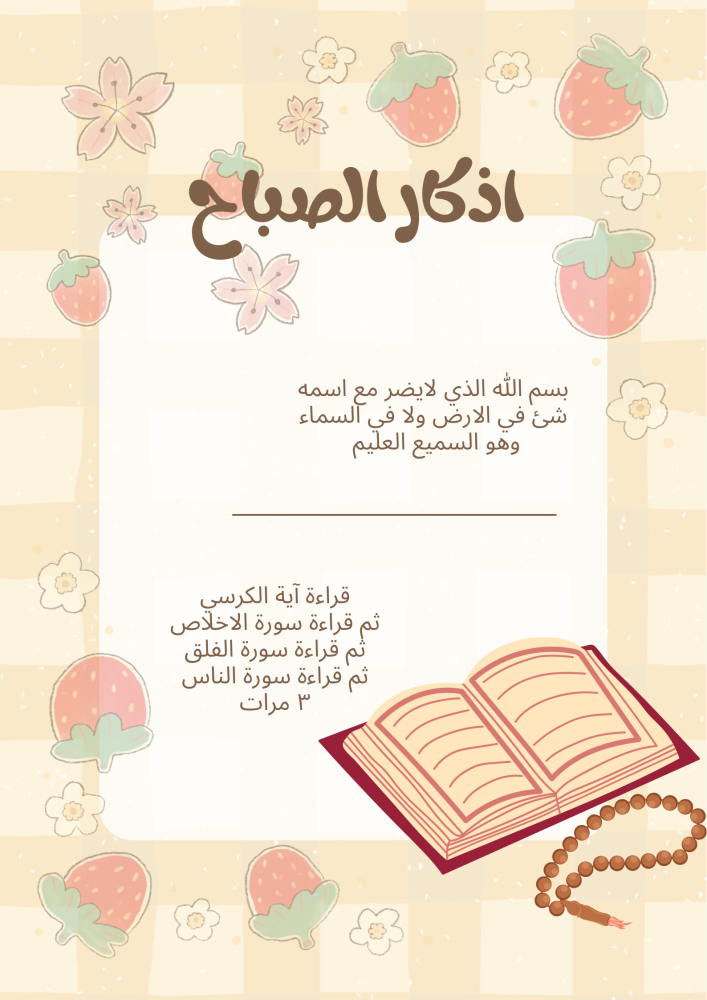 اذكار الصباح
بسم الله الذي لايضر مع اسمه
شئ في الارض ولا في السماء
وهو السميع العليم
قراءة آية الكرسي
ثم قراءة سورة الاخلاص
ثم قراءة سورة الفلق
ثم قراءة سورة الناس
٣ مرات